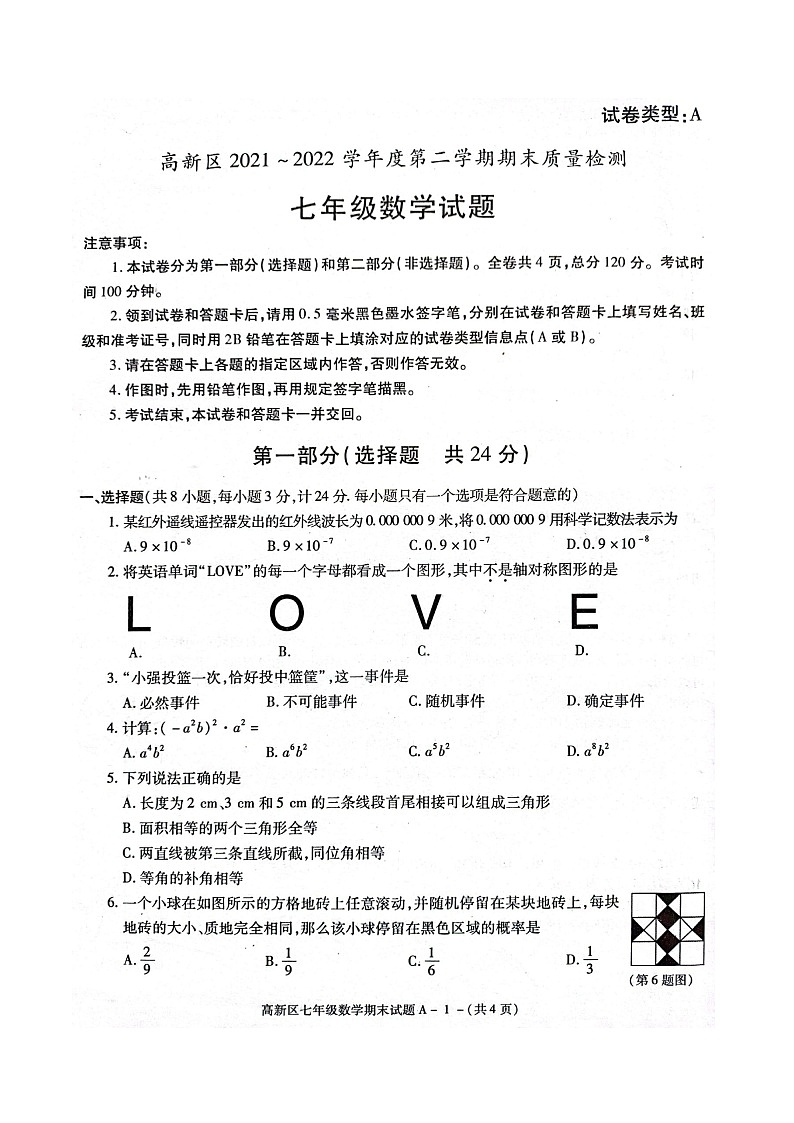 试卷类型:A
高新区 2021 ~ 2022 学年度第二学期期末质量检测
七年级数学试题
注意事项:
1. 本试卷分为第一部分(选择题)和第二部分(非选择题)。全卷共 4 页,总分 120 分。考试时
间 100 分钟。
2. 领到试卷和答题卡后,请用 0.5 毫米黑色墨水签字笔,分别在试卷和答题卡上填写姓名、班
级和准考证号,同时用 2B 铅笔在答题卡上填涂对应的试卷类型信息点(A 或 B)。
3. 请在答题卡上各题的指定区域内作答,否则作答无效。
4. 作图时,先用铅笔作图,再用规定签字笔描黑。
5. 考试结束,本试卷和答题卡一并交回。
第一部分(选择题 共 24 分)
一、选择题(共 8 小题,每小题 3 分,计 24 分. 每小题只有一个选项是符合题意的)
1. 某红外遥线遥控器发出的红外线波长为 0.000 000 9 米,将 0.000 000 9 用科学记数法表示为
A. 9 × 10⁻⁸ B. 9 × 10⁻⁷ C. 0.9 × 10⁻⁷ D. 0.9 × 10⁻⁸
2. 将英语单词“LOVE”的每一个字母都看成一个图形,其中不是轴对称图形的是
L O V E
A. B. C. D.
3. “小强投篮一次,恰好投中篮筐”,这一事件是
A. 必然事件 B. 不可能事件 C. 随机事件 D. 确定事件
4. 计算:(-a²b)²·a² =
A. a⁴b² B. a⁶b² C. a⁵b² D. a⁸b²
5. 下列说法正确的是
A. 长度为 2 cm、3 cm 和 5 cm 的三条线段首尾相接可以组成三角形
B. 面积相等的两个三角形全等
C. 两直线被第三条直线所截,同位角相等
D. 等角的补角相等
6. 一个小球在如图所示的方格地砖上任意滚动,并随机停留在某块地砖上,每块
地砖的大小、质地完全相同,那么该小球停留在黑色区域的概率是
A. 2/9 B. 1/9 C. 1/6 D. 1/3
(第 6 题图)
高新区七年级数学期末试题 A - 1 - (共 4 页)